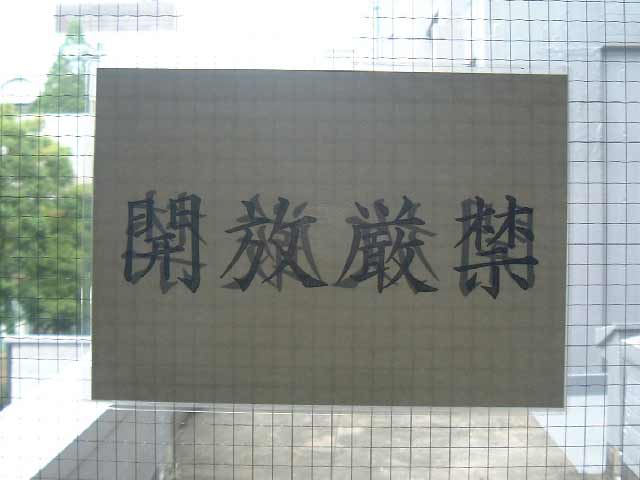 開放厳禁